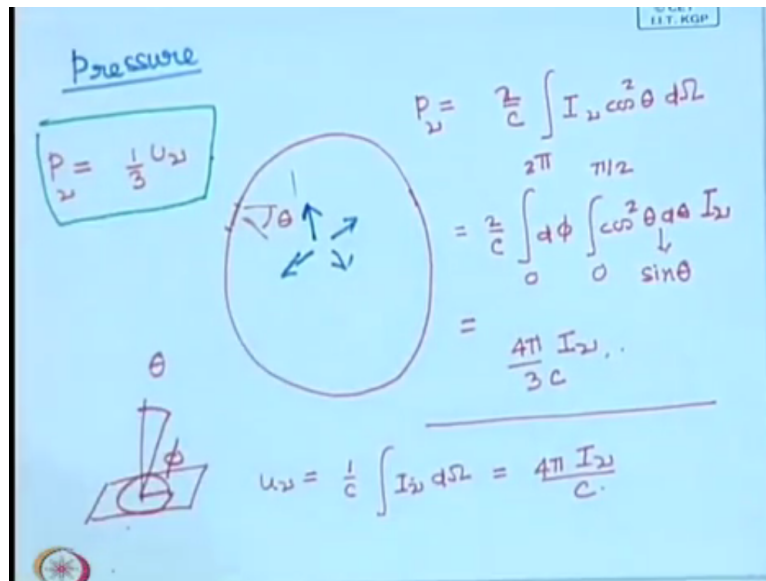 I.I.T. KGP
Pressure
P_ν = 1/3 u_ν
P_ν = 2/c ∫ I_ν cos²θ dΩ
= 2/c ∫₀^{2π} dφ ∫₀^{π/2} cos²θ dθ I_ν
↓
sinθ
= 4π/3c I_ν . .
θ
θ
φ
u_ν = 1/c ∫ I_ν dΩ = 4π I_ν/c .